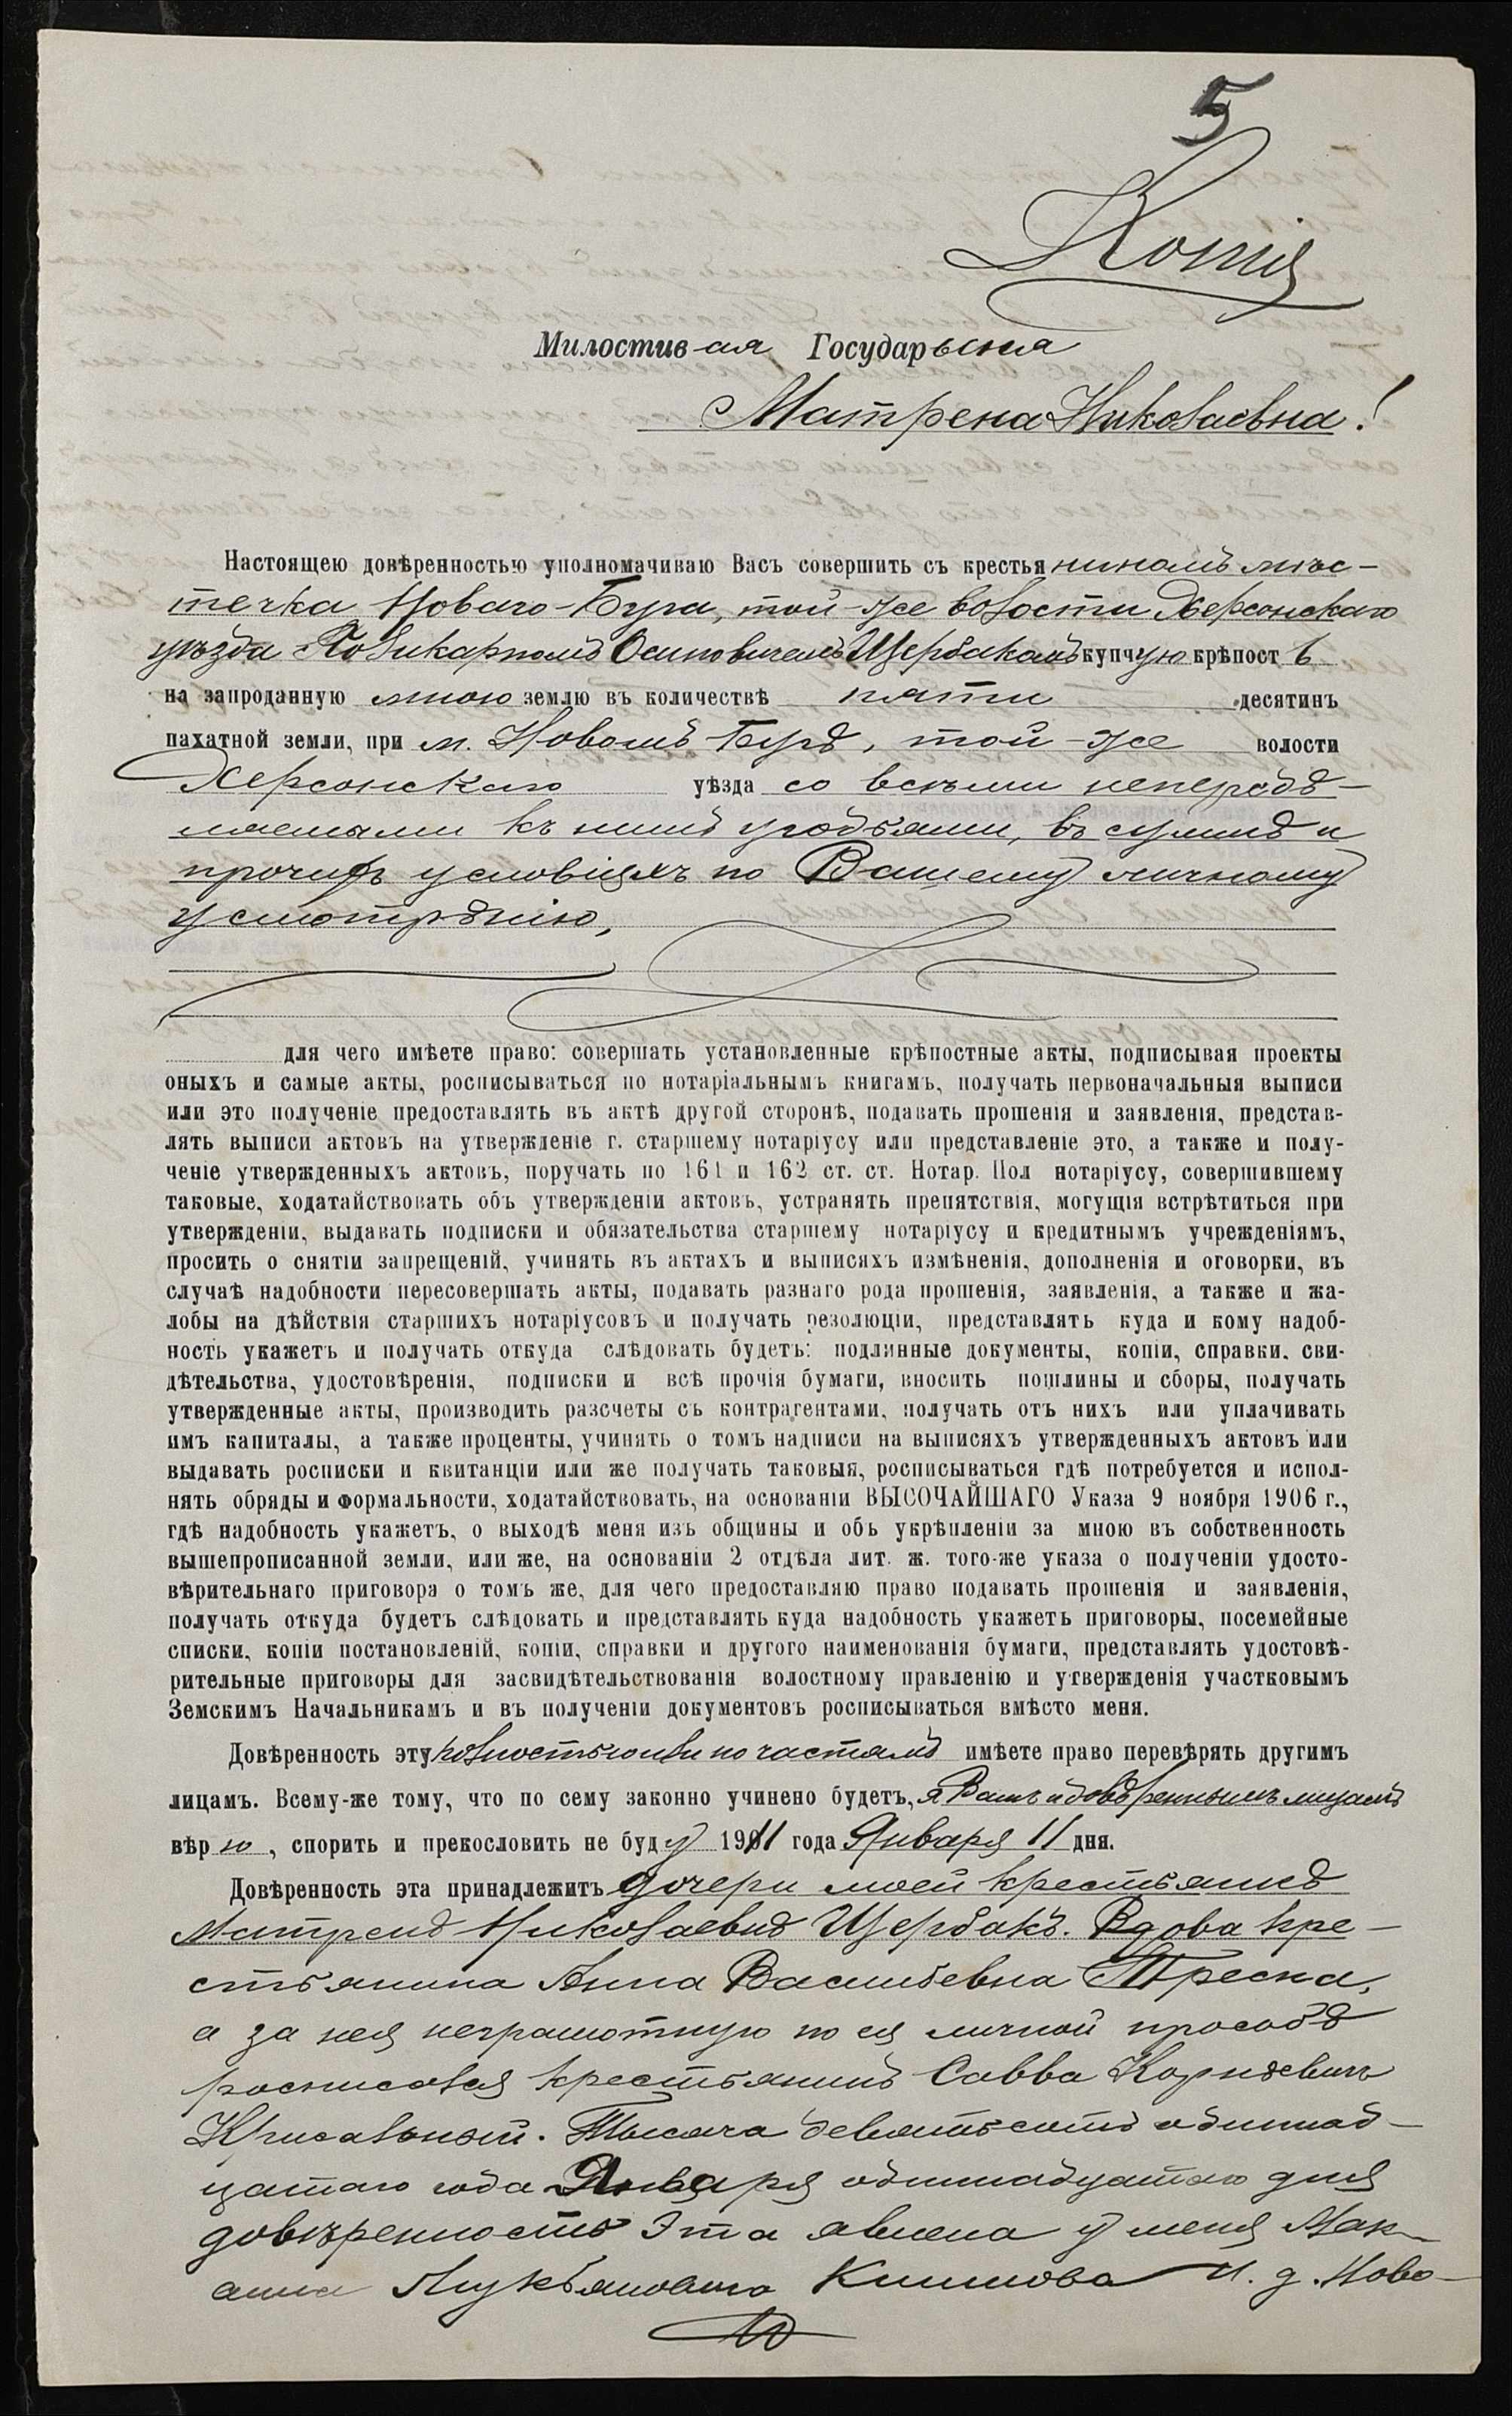 5
Копія
Милостивая Государыня
Матрена Николаевна!
Настоящею довѣренностью уполномачиваю Васъ совершить съ крестьяниномъ мѣс-
течка Новаго-Буга, той-же волости Херсонскаго
уѣзда Поликарпомъ Осиповичемъ Щербакомъ купчую крѣпость
на запроданную мною землю въ количествѣ пяти десятинъ
пахатной земли, при м. Новомъ Бугѣ, той-же волости
Херсонскаго уѣзда со всѣми
къ нимъ угодьями, въ суммѣ и
прочихъ условіяхъ по Вашему личному
усмотрѣнію,
для чего имѣете право: совершать установленные крѣпостные акты, подписывая проекты
оныхъ и самые акты, росписываться по нотаріальнымъ книгамъ, получать первоначальныя выписи
или это полученіе предоставлять въ актѣ другой сторонѣ, подавать прошенія и заявленія, представ-
лять выписи актовъ на утвержденіе г. старшему нотаріусу или представленіе это, а также и полу-
ченіе утвержденныхъ актовъ, поручать по 161 и 162 ст. ст. Нотар. Пол нотаріусу, совершившему
таковые, ходатайствовать объ утвержденіи актовъ, устранять препятствія, могущія встрѣтиться при
утвержденіи, выдавать подписки и обязательства старшему нотаріусу и кредитнымъ учрежденіямъ,
просить о снятіи запрещеній, учинять въ актахъ и выписяхъ измѣненія, дополненія и оговорки, въ
случаѣ надобности пересовершать акты, подавать разнаго рода прошенія, заявленія, а также и жа-
лобы на дѣйствія старшихъ нотаріусовъ и получать резолюціи, представлять куда и кому надоб-
ность укажетъ и получать откуда слѣдовать будетъ: подлинные документы, копіи, справки. сви-
дѣтельства, удостовѣренія, подписки и всѣ прочія бумаги, вносить пошлины и сборы, получать
утвержденные акты, производить разсчеты съ контрагентами, получать отъ нихъ или уплачивать
имъ капиталы, а также проценты, учинять о томъ надписи на выписяхъ утвержденныхъ актовъ или
выдавать росписки и квитанціи или же получать таковыя, росписываться гдѣ потребуется и испол-
нять обряды и формальности, ходатайствовать, на основаніи ВЫСОЧАЙШАГО Указа 9 ноября 1906 г.,
гдѣ надобность укажетъ, о выходѣ меня изъ общины и объ укрѣпленіи за мною въ собственность
вышепрописанной земли, или же, на основаніи 2 отдѣла лит. ж. того-же указа о полученіи удосто-
вѣрительнаго приговора о томъ же, для чего предоставляю право подавать прошенія и заявленія,
получать откуда будетъ слѣдовать и представлять куда надобность укажетъ приговоры, посемейные
списки, копіи постановленій, копіи, справки и другого наименованія бумаги, представлять удостовѣ-
рительные приговоры для засвидѣтельствованія волостному правленію и утвержденія участковымъ
Земскимъ Начальникамъ и въ полученіи документовъ росписываться вмѣсто меня.
Довѣренность эту полностью или по частямъ имѣете право перевѣрять другимъ
лицамъ. Всему-же тому, что по сему законно учинено будетъ, я Вамъ и довѣреннымъ лицамъ
вѣрю, спорить и прекословить не буду 1911 года Января 11 дня.
Довѣренность эта принадлежитъ дочери моей крестьянкѣ
Матренѣ Николаевнѣ Щербакъ. Вдова кре-
стьянина Анна Васильевна
а за нея неграмотную по ея личной просьбѣ
росписался крестьянинъ Савва Корнѣевичъ
Тысяча девятьсотъ одиннад-
цатаго года Января одиннадцатаго дня
довѣренность эта явлена у меня Мак-
Лукьяновича Климова И. д. Ново-